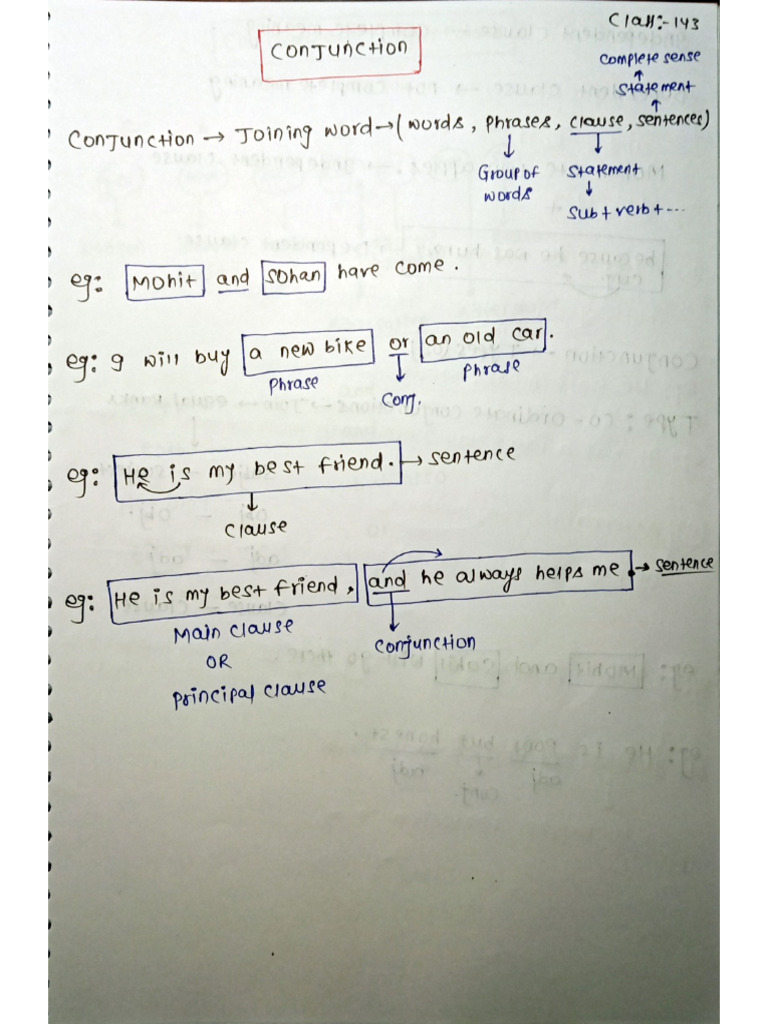 Class:-143
CONJUNCTION
Complete sense
↑
Statement
↑
Conjunction → Joining word → (words, phrases, clause, sentences)
↓ ↓
Group of words
Statement
↓
Sub + verb + ...
eg: Mohit and Sohan have come.
eg: I will buy a new bike or an old car.
Phrase Phrase
↓
Conj.
eg: He is my best friend. → sentence
↓
Clause
eg: He is my best friend, and he always helps me → sentence
Main clause
OR
Principal clause
↓
Conjunction